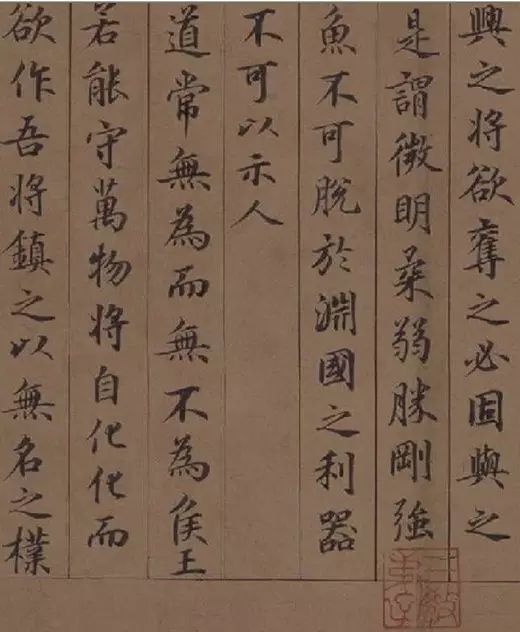 興之将欲奪之必固與之
是謂微明柔弱勝剛強
魚不可脫於淵國之利器
不可以示人
道常無為而無不為侯王
若能守萬物将自化化而
欲作吾将鎮之以無名之樸